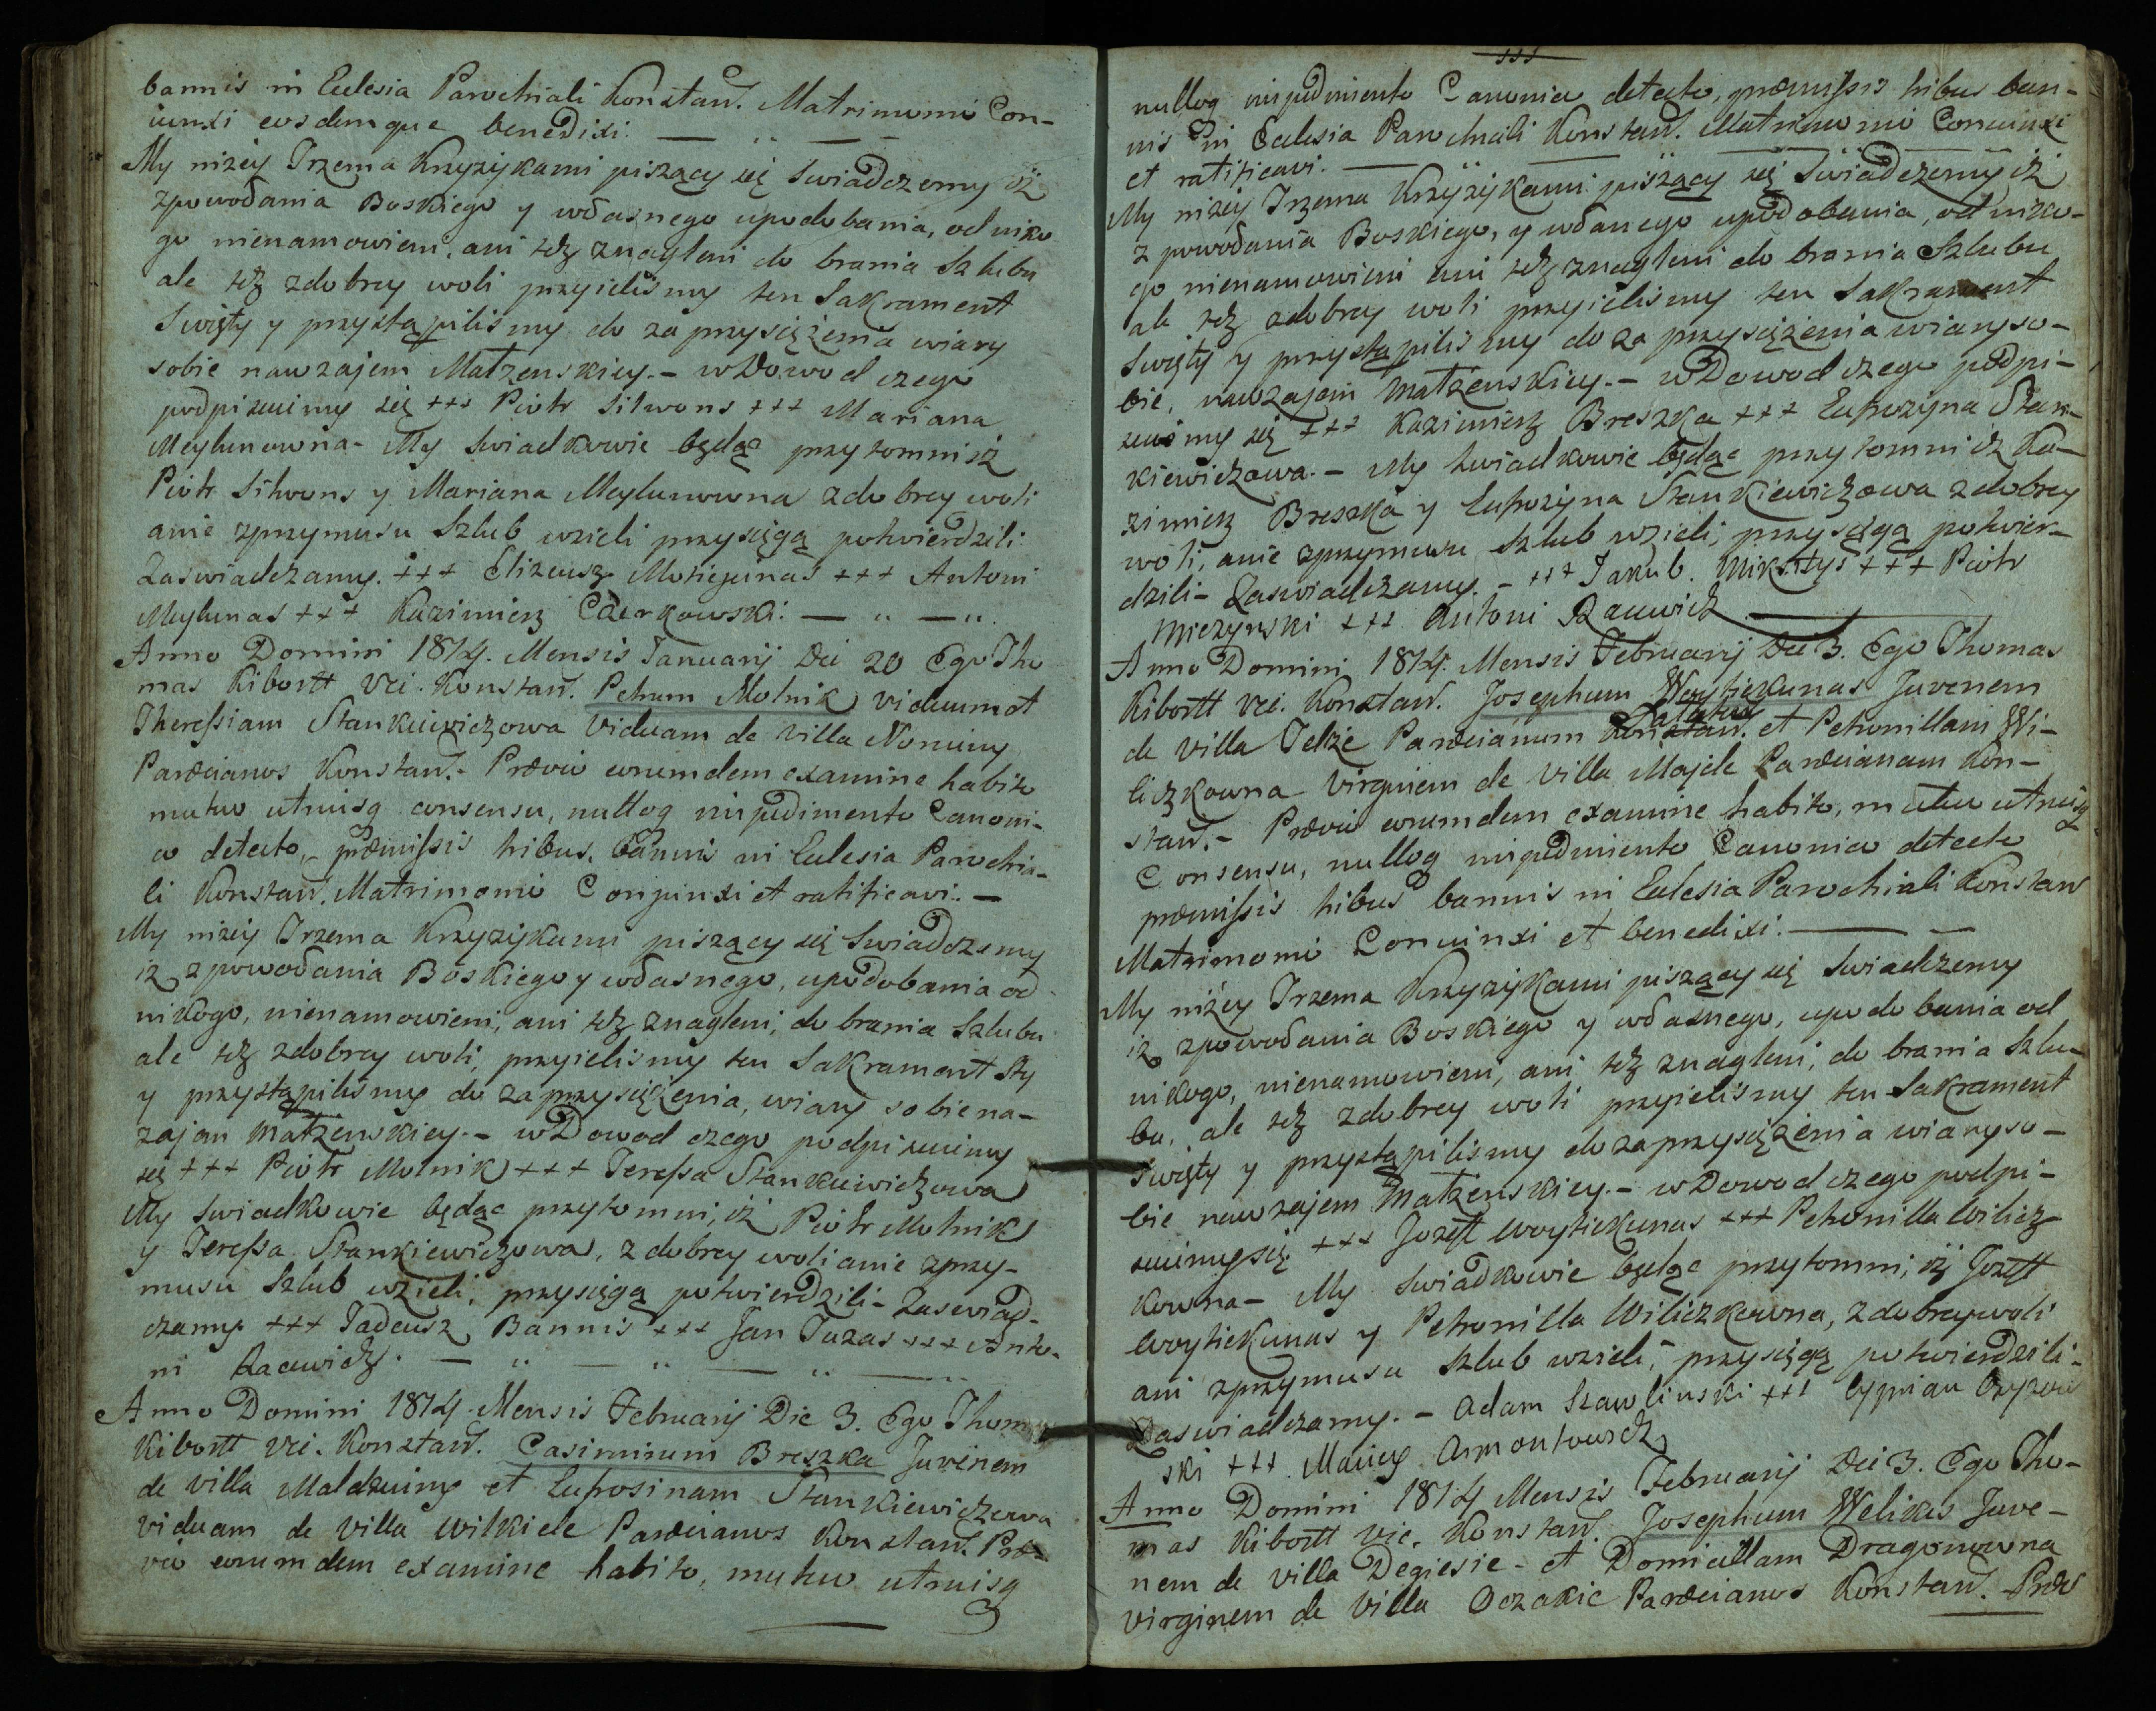 bannis in Eclesia Parochiali Konstaw. Matrimonio Con-
iunxi eosdemque benedixi.
My niżey Trzema Krzyżykami piszący się swiadczemy iż
zpowołania Boskiego y własnego upodobania, od niko
go nienamowieni, ani też znagleni do brania Szlubu
ale też zdobrey woli przyieliśmy ten Sakrament
Swięty y przystąpiliśmy do zaprzysiężenia wiary
sobie nawzajem Małżenskiey. - w Dowod czego
podpisuimy się +++ Piotr Silwons +++ Mariana
Meylunowna - My swiadkowie będąc przytomni iż
Piotr Silwons y Mariana Meylunowna zdobrey woli
anie zprzymusu Szlub wzieli przysięgą potwierdzili
Zaswiadczamy. +++ Elizeusz Motiejunas +++ Antoni
Meylunas +++ Kazimierz Czerkowski.
Anno Domini 1814. Mensis Januarij Die 20 Ego Tho
mas Kibortt Vci. Konstaw. Petrum Molnik viduum et
Theressiam Stankiewiczowa Viduam de villa Noruny
Parœcianos Konstaw. - Prævio eorumdem examine habito
mutuo utriusq consensu, nulloq impedimento Canoni-
co detecto, præmissis tribus bannis in Eclesia Parochia-
li Konstaw. Matrimonio Conjunxi et ratificavi. -
My niżey Trzema Krzyżykami piszący się Swiadczemy
iż zpowołania Boskiego y własnego, upodobania od
nikogo, nienamowieni, ani też znagleni, do brania Szlubu
ale też zdobrey woli, przyieliśmy ten Sakrament Sty
y przystąpiliśmy do zaprzysiężenia, wiary sobie na-
zajem Małżenskiey. - w Dowod czego podpisuimy
się +++ Piotr Molnik +++ Teressa Stankiewiczowa
My Swiadkowie będąc przytomni, iż Piotr Molnik
y Teressa Stankiewiczowa, z dobrey woli anie zprzy-
musu Szlub wzieli, przysięgą potwierdzili - Zaswiad-
czamy +++ Tadeusz Bannis +++ Jan Tuzas +++ Anto-
ni Racewicz.
Anno Domini 1814. Mensis Februarij Die 3. Ego Thomas
Kibortt Vci. Konstaw. Casimirum Breszka Juvenem
de villa Maldzuiny et Eufrosinam Stankiewiczowa
viduam de villa Wilkiele Parœcianos Konstaw. Præ-
vio eorumdem examine habito, mutuo utriusq
nulloq impedimento Canonico detecto, præmissis tribus ban-
nis in Eclesia Parochiali Konstaw. Matrimonio Coniunxi
et ratificavi.
My niżey Trzema Krzyżykami piszący się Swiadczemy iż
z powołania Boskiego, y włanego upodobania, od niko-
go nienamowieni ani też znagleni do brania Szlubu
ale też zdobrey woli przyieliśmy ten Sakrament
Swięty y przystąpiliśmy do zaprzysiężenia wiary so-
bie, nawzajem Małżenskiey. - w Dowod czego podpi-
suimy się +++ Kazimierz Breszka +++ Eufrozyna Stan-
kiewiczowa. - My Swiadkowie będąc przytomni iż Ka-
zimierz Breszka y Eufrozyna Stankiewiczowa zdobrey
woli, anie zprzymusu Szlub wzieli, przysięgą potwier-
dzili - Zaswiadczamy. - +++ Jakub. Miksztys +++ Piotr
Mieżynski +++ Antoni Racewicz
Anno Domini 1814. Mensis Februarij Die 3. Ego Thomas
Kibortt Vci. Konstaw. Josephum Woytiekunas Juvenem
de villa Jelże Parœcianum Konstaw. et Petronillam Wi-
liczkowna Virginem de villa Majele Parœcianam Kon-
staw. - Prævio eorumdem examine habito, mutuo utriusq
Consensu, nulloq impedimento Canonico detecto
præmissis tribus bannis in Eclesia Parochiali Konstaw
Matrimonio Coniunxi et benedixi.
My niżey Trzema Krzyżykami piszący się Swiadczemy
iż zpowołania Boskiego y własnego, upodobania od
nikogo, nienamowieni, ani też znagleni, do brania Szlu-
bu, ale też zdobrey woli przyieliśmy ten Sakrament
Swięty y przystąpiliśmy do zaprzysiężenia wiary so-
bie nawzajem Małżenskiey. - w Dowod czego podpi-
suimy się +++ Jozeff Woytiekunas +++ Petronilla Wilicz-
kowna - My Swiadkowie będąc przytomni, iż Jozeff
Woytiekunas y Petronilla Wiliczkowna, zdobrey woli
ani zprzymusu Szlub wzieli, przysięgą potwierdzili -
Zaswiadczamy. - Adam Szawlinski +++ Cyprian
ski +++ Maciey Armontowicz
Anno Domini 1814 Mensis Februarij Die 3. Ego Tho-
mas Kibortt Vic. Konstaw. Josephum Welikas Juve-
nem de villa Degiesie - et Domicellam Dragonowna
virginem de Villa Oczakie Parœcianos Konstaw. Præv